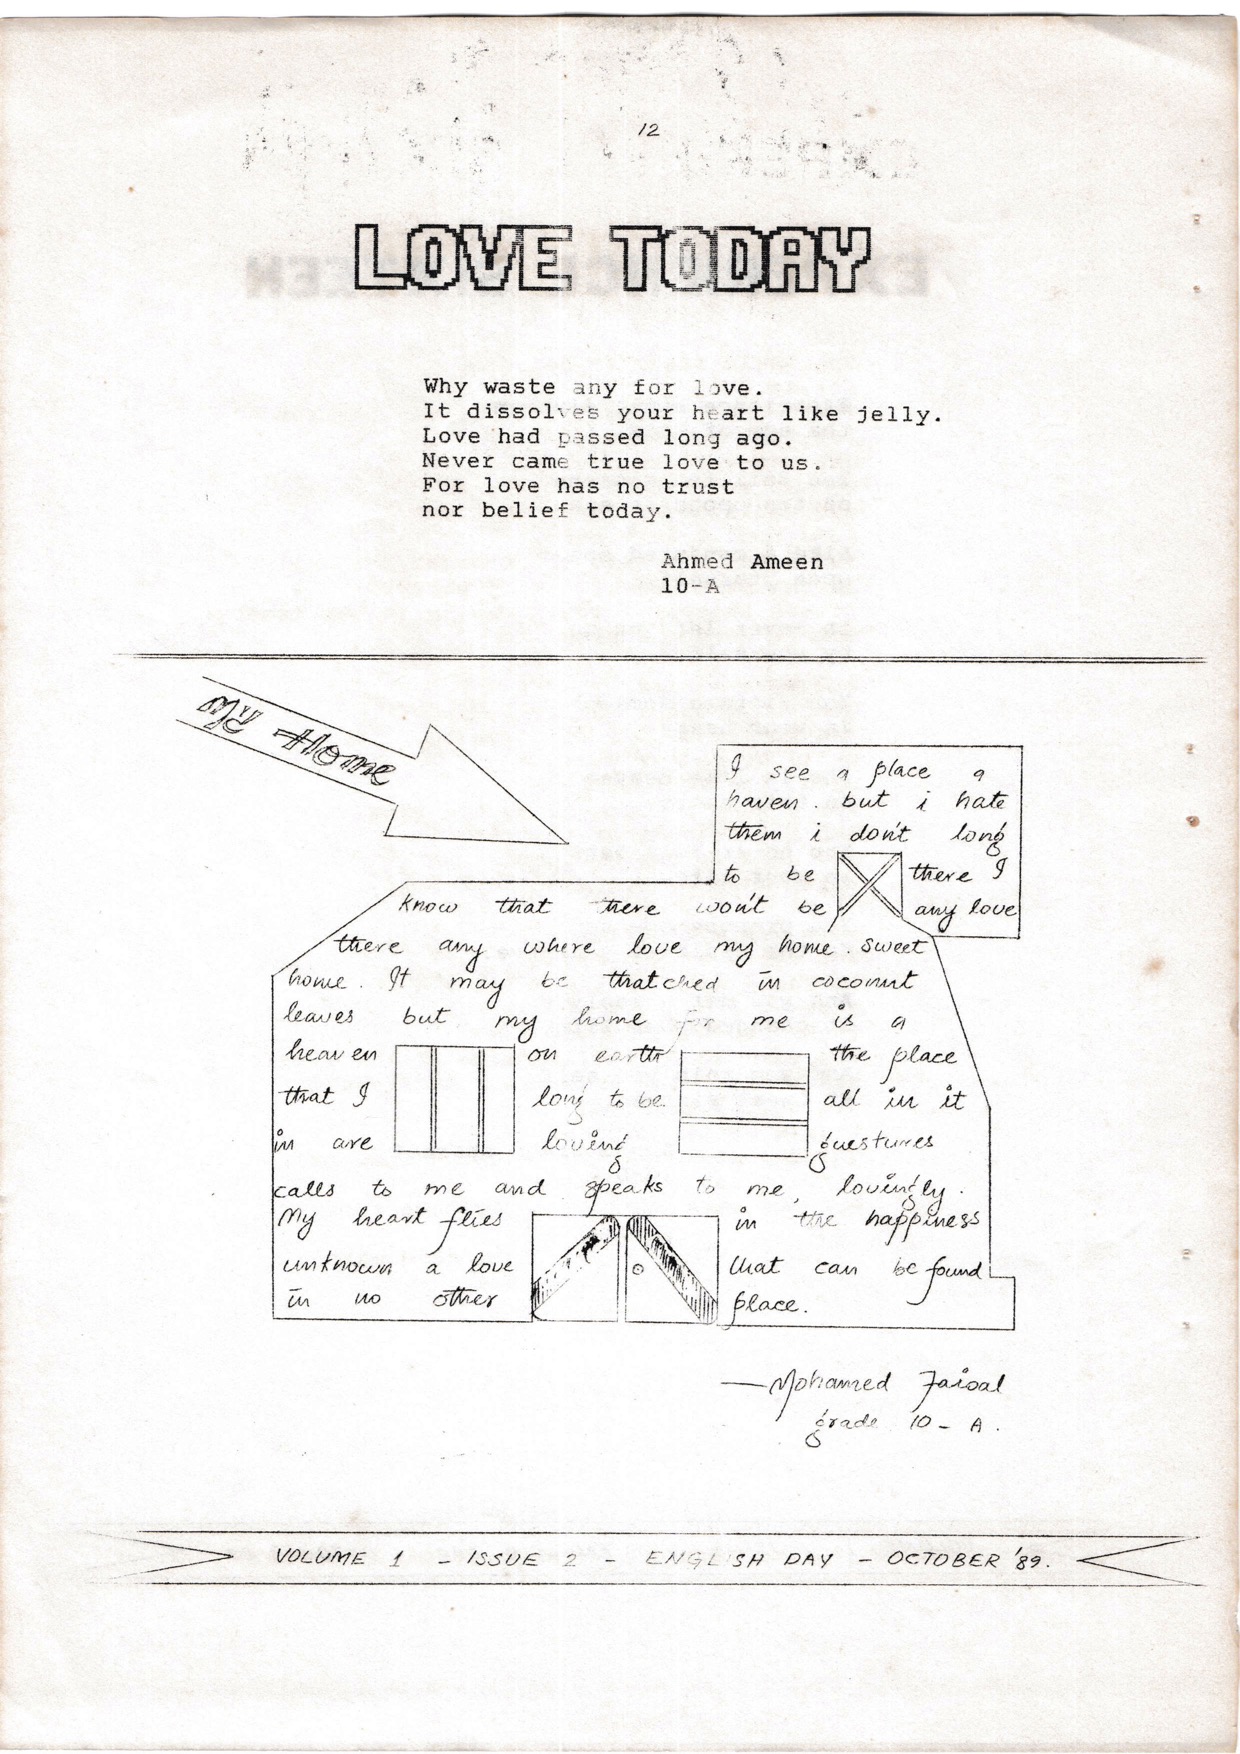 12
LOVE TODAY
Why waste any for love.
It dissolves your heart like jelly.
Love had passed long ago.
Never came true love to us.
For love has no trust
nor belief today.
Ahmed Ameen
10-A
My Home
I see a place a
haven. but i hate
them i don't long
to be there I
know that there won't be any love
there any where love my home. sweet
home. It may be thatched in coconut
leaves but my home for me is a
heaven on earth the place
that I long to be all in it
in are loving guestures
calls to me and speaks to me, lovingly.
My heart flies in the happiness
unknown a love that can be found
in no other place.
—Mohamed Faisal
grade 10 - A.
VOLUME 1 - ISSUE 2 - ENGLISH DAY - OCTOBER '89.